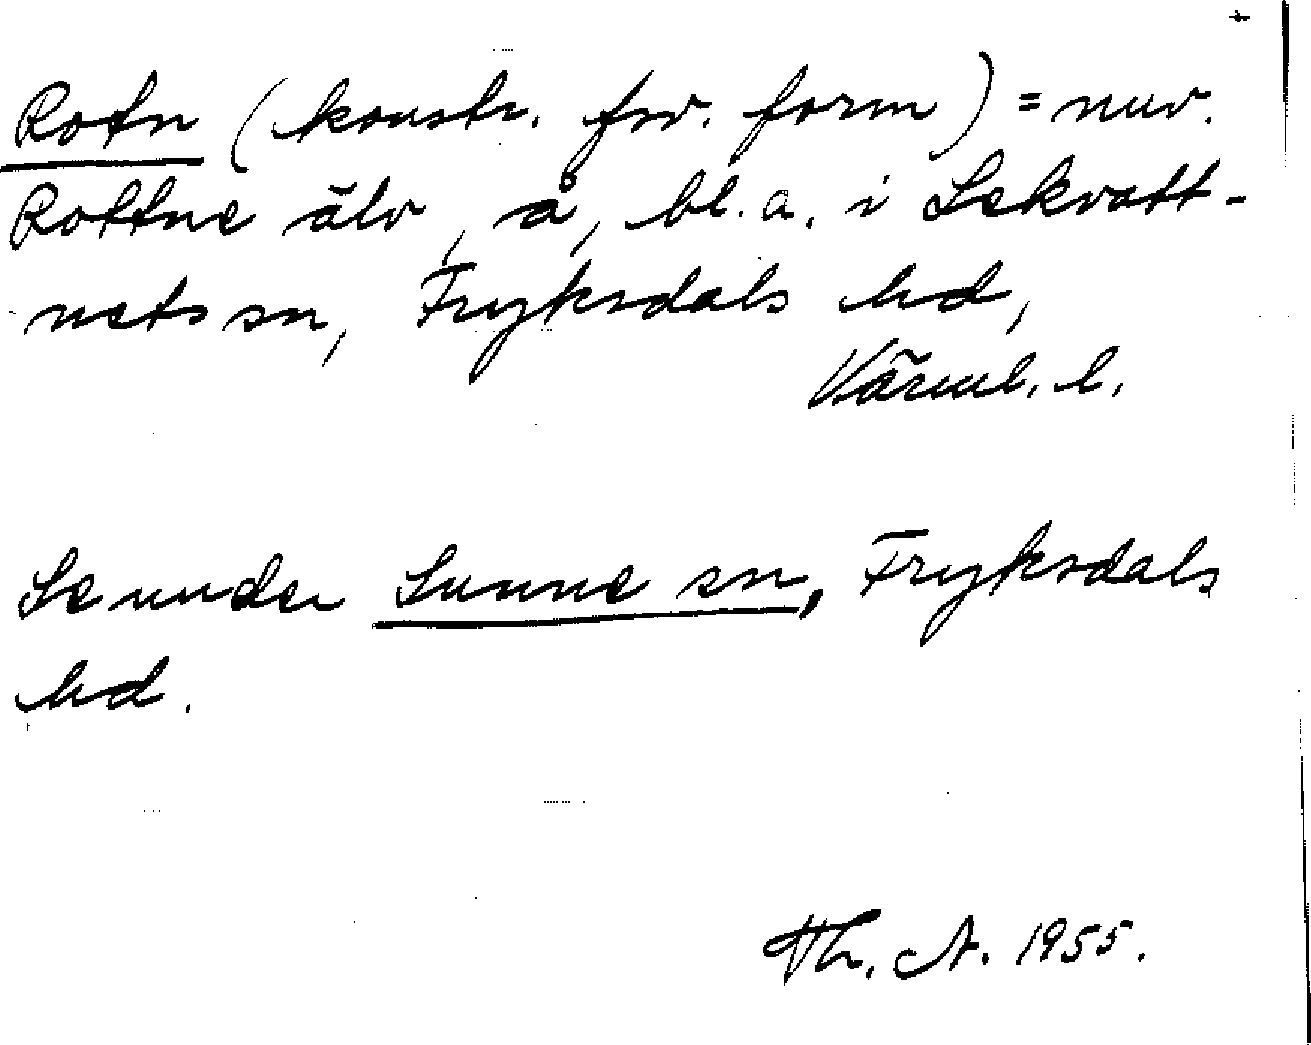 Rotn (konstr. fsv. form) = nuv.
Rottne älv, å, bl.a. i Lekvatt-
nets sn, Fryksdals hd,
Värml. l.
Se under Sunne sn, Fryksdals
hd.
Th. A. 1955.